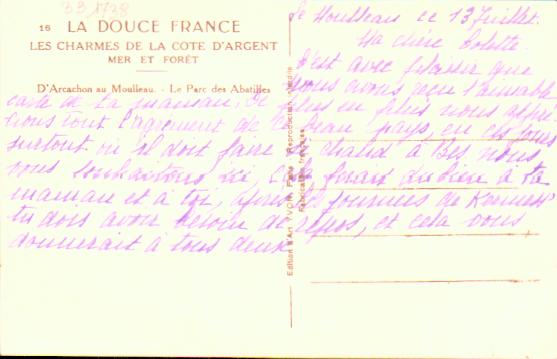 33 1728
16 LA DOUCE FRANCE
LES CHARMES DE LA COTE D'ARGENT
MER ET FORÊT
D'Arcachon au Moulleau. - Le Parc des Abatilles
Edition d'Art "YVON" Paris Reproduction interdite
Fabrication française
Le Moulleau ce 13 Juillet.
Ma chère Colette.
C'est avec plaisir que
nous avons reçu l'aimable
carte de ta maman, de plus en plus nous
nous tout l'agrément de ce beau pays, en ces jours
surtout où il doit faire chaud à nous
vous souhaiterions ici, cela ferait du bien à ta
maman et à toi, après les journées de
tu dois avoir besoin de repos, et cela vous
donnerait à tous deux